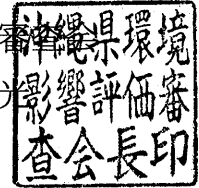 審
光
沖縄県環境
影響評価審
査会長印